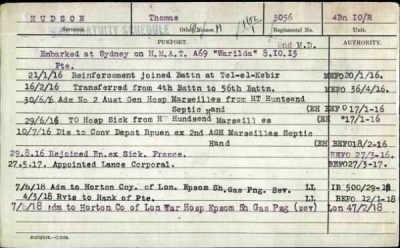 HUDSON Thomas 3056 4Bn IO/R
Surname. Other Names Regimental No. Unit.
PURPORT. AUTHORITY.
2nd M.D.
Embarked at Sydney on H.M.A.T. A69 "Warilda" 8.10.15
Pte.
21/1/16 Reinforcement joined Battn at Tel-el-Kebir MEFO20/1/16.
16/2/16 Transferred from 4th Battn to 56th Battn. MEFO 36/4/16.
30/6/16 Adm No 2 Aust Gen Hosp Marseilles from HT Huntsend
Septic Hand (EH BEFO"17/1-16
29/6/16 TO Hosp Sick from HT Hundsend Marseilles (EH "17/1-16
10/7/16 Dis to Conv Depot ex 2nd AGH Marseilles Septic
Hand (EH BEFO18/2-16
29.8.16 Rejoined Bn.ex Sick. France. BEFO 27/3-16.
27.5.17. Appointed Lance Corporal. BEFO27/3-17.
7/6/18 Adm to Horton Coy. of Lon. Epsom Sh.Gas Png. Sev. LL IB 500/29-18
4/3/18 Rvts to Rank of Pte. LL BEFO 12/1-18
7/6/18 adm to Horton Co of Lon War Hosp Epsom Sh Gas Png (sev) Lon 47/2/18